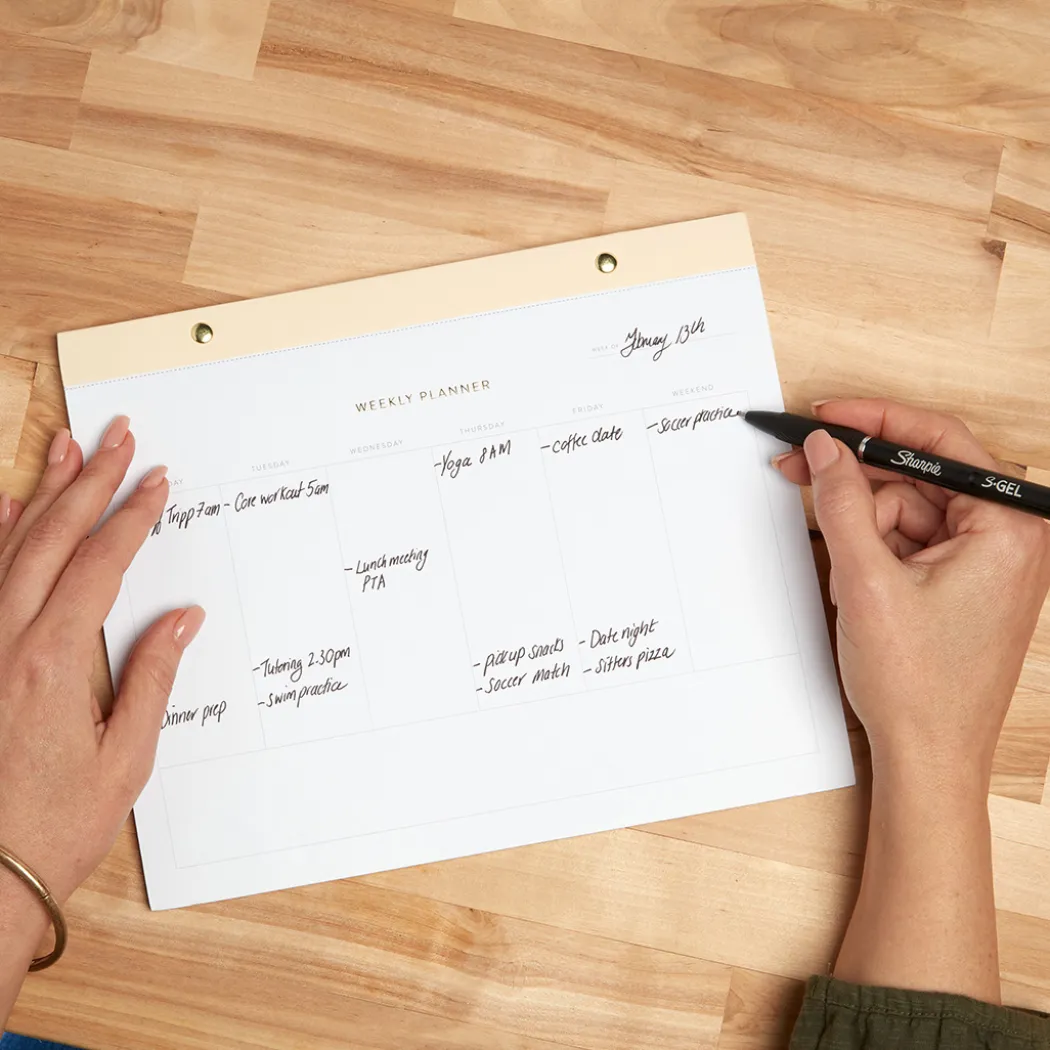 WEEK OF February 13th
WEEKLY PLANNER
DAY
TUESDAY
WEDNESDAY
THURSDAY
FRIDAY
WEEKEND
Tripp 7am
Dinner prep
- Core workout 5am
- Tutoring 2.30pm
- swim practice
- Lunch meeting
PTA
- Yoga 8AM
- pick up snacks
- Soccer match
- coffee date
- Date night
- Sitters pizza
- Soccer practice
Sharpie S·GEL